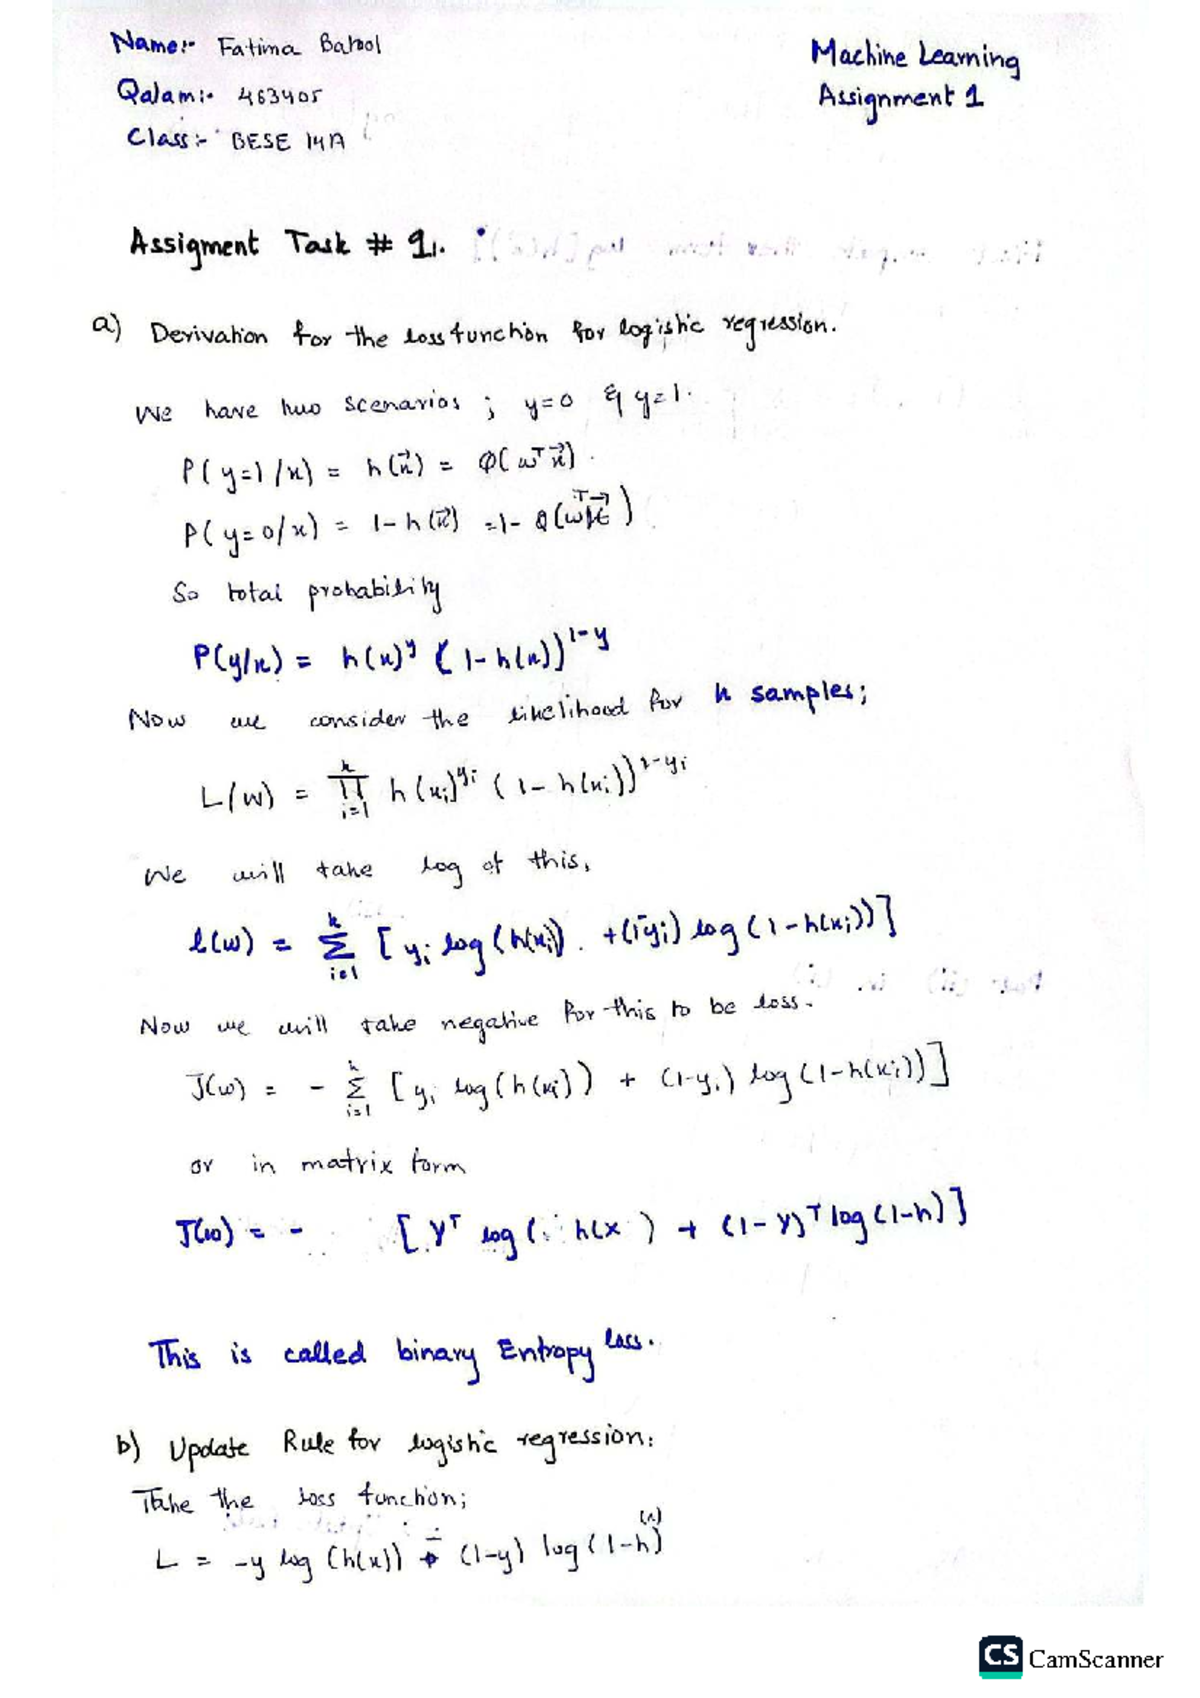 Name:- Fatima Batool
Machine Learning
Qalam:- 463405
Assignment 1
Class:- BESE 14A
Assigment Task # 1.
a) Derivation for the loss function for logistic regression.
We have two scenarios ; y=0 & y=1.
P(y=1/x) = h(x⃗) = Φ(wᵀx⃗).
P(y=0/x) = 1-h(x⃗) = 1-
So total probability
P(y/x) = h(x)ʸ (1-h(x))¹⁻ʸ
Now we consider the likelihood for k samples;
L(w) = ∏ᵏᵢ₌₁ h(xᵢ)^yᵢ (1-h(xᵢ))^1-yᵢ
We will take log of this,
l(w) = Σᵏᵢ₌₁ [yᵢ log(h(xᵢ)) + (1-yᵢ) log(1-h(xᵢ))]
Now we will take negative for this to be loss.
J(w) = - Σᵏᵢ₌₁ [yᵢ log(h(xᵢ)) + (1-yᵢ) log(1-h(xᵢ))]
or in matrix form
J(w) = - [Yᵀ log( h(x ) + (1-Y)ᵀ log(1-h)]
This is called binary Entropy loss.
b) Update Rule for logistic regression:
Take the loss function;
L = -y log(h(x)) - (1-y) log(1-h(x))
CS CamScanner